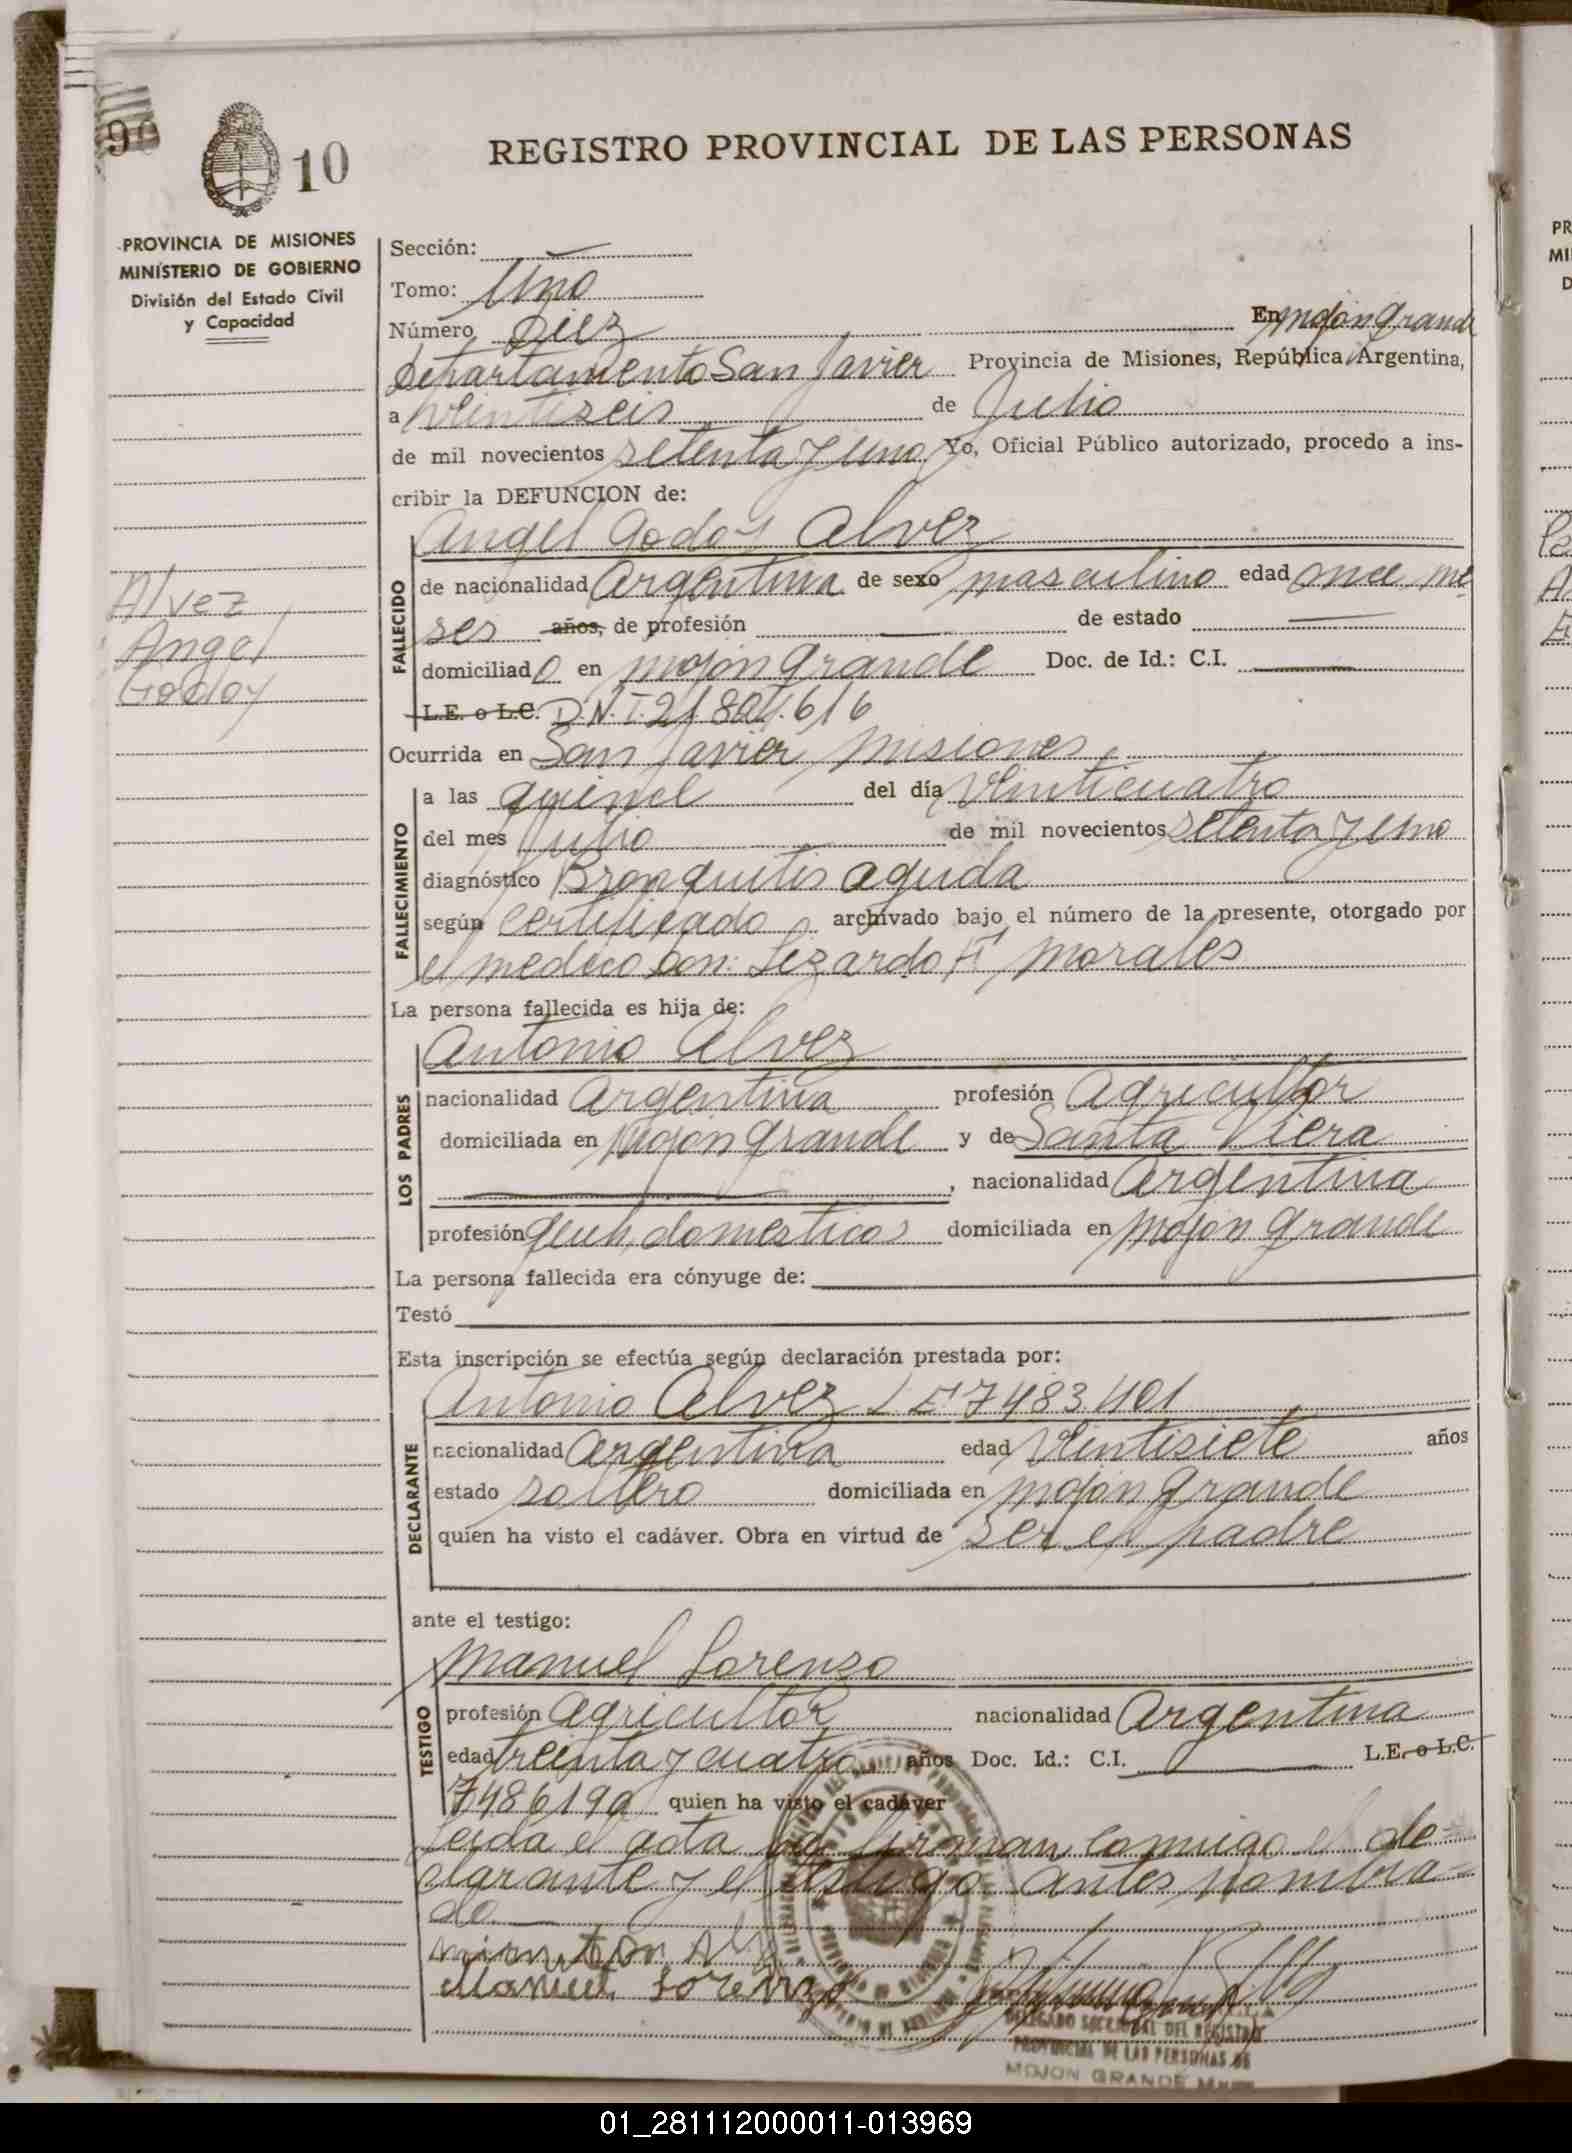 10
REGISTRO PROVINCIAL DE LAS PERSONAS
PROVINCIA DE MISIONES
MINISTERIO DE GOBIERNO
División del Estado Civil
y Capacidad
Alvez
Angel
Godoy
Sección:
Tomo: Uno
Número Diez En Mojón Grande
departamento San Javier Provincia de Misiones, República Argentina,
a veintiseis de Julio
de mil novecientos setenta y uno Yo, Oficial Público autorizado, procedo a ins-
cribir la DEFUNCION de:
Angel Godoy Alvez
FALLECIDO
de nacionalidad Argentina de sexo masculino edad once me-
ses años, de profesión de estado
domiciliado en mojón grande Doc. de Id.: C.I.
L.E. o L.C. D.N.I. 21.804.616
Ocurrida en San Javier, misiones
FALLECIMIENTO
a las quince del día veinticuatro
del mes Julio de mil novecientos setenta y uno
diagnóstico Bronquitis aguda
según certificado archivado bajo el número de la presente, otorgado por
el medico Don: Lizardo F. Morales
La persona fallecida es hija de:
Antonio Alvez
LOS PADRES
nacionalidad argentina profesión agricultor
domiciliada en Mojón grande y de Santa Viera
, nacionalidad Argentina
profesión queh. domesticos domiciliada en mojón grande
La persona fallecida era cónyuge de:
Testó
Esta inscripción se efectúa según declaración prestada por:
Antonio Alvez L E 7483401
DECLARANTE
nacionalidad argentina edad veintisiete años
estado soltero domiciliada en mojón grande
quien ha visto el cadáver. Obra en virtud de ser el padre
ante el testigo:
Manuel Lorenzo
TESTIGO
profesión agricultor nacionalidad Argentina
edad treinta y cuatro años Doc. Id.: C.I. L.E. o L.C.
7486190 quien ha visto el cadáver
Leida el acta la firman comigo el de-
clarante y el testigo antes nombra-
do
Manuel Lorenzo
DELEGADO SECCIONAL DEL REGISTRO
PROVINCIAL DE LAS PERSONAS DE
MOJON GRANDE
01_281112000011-013969